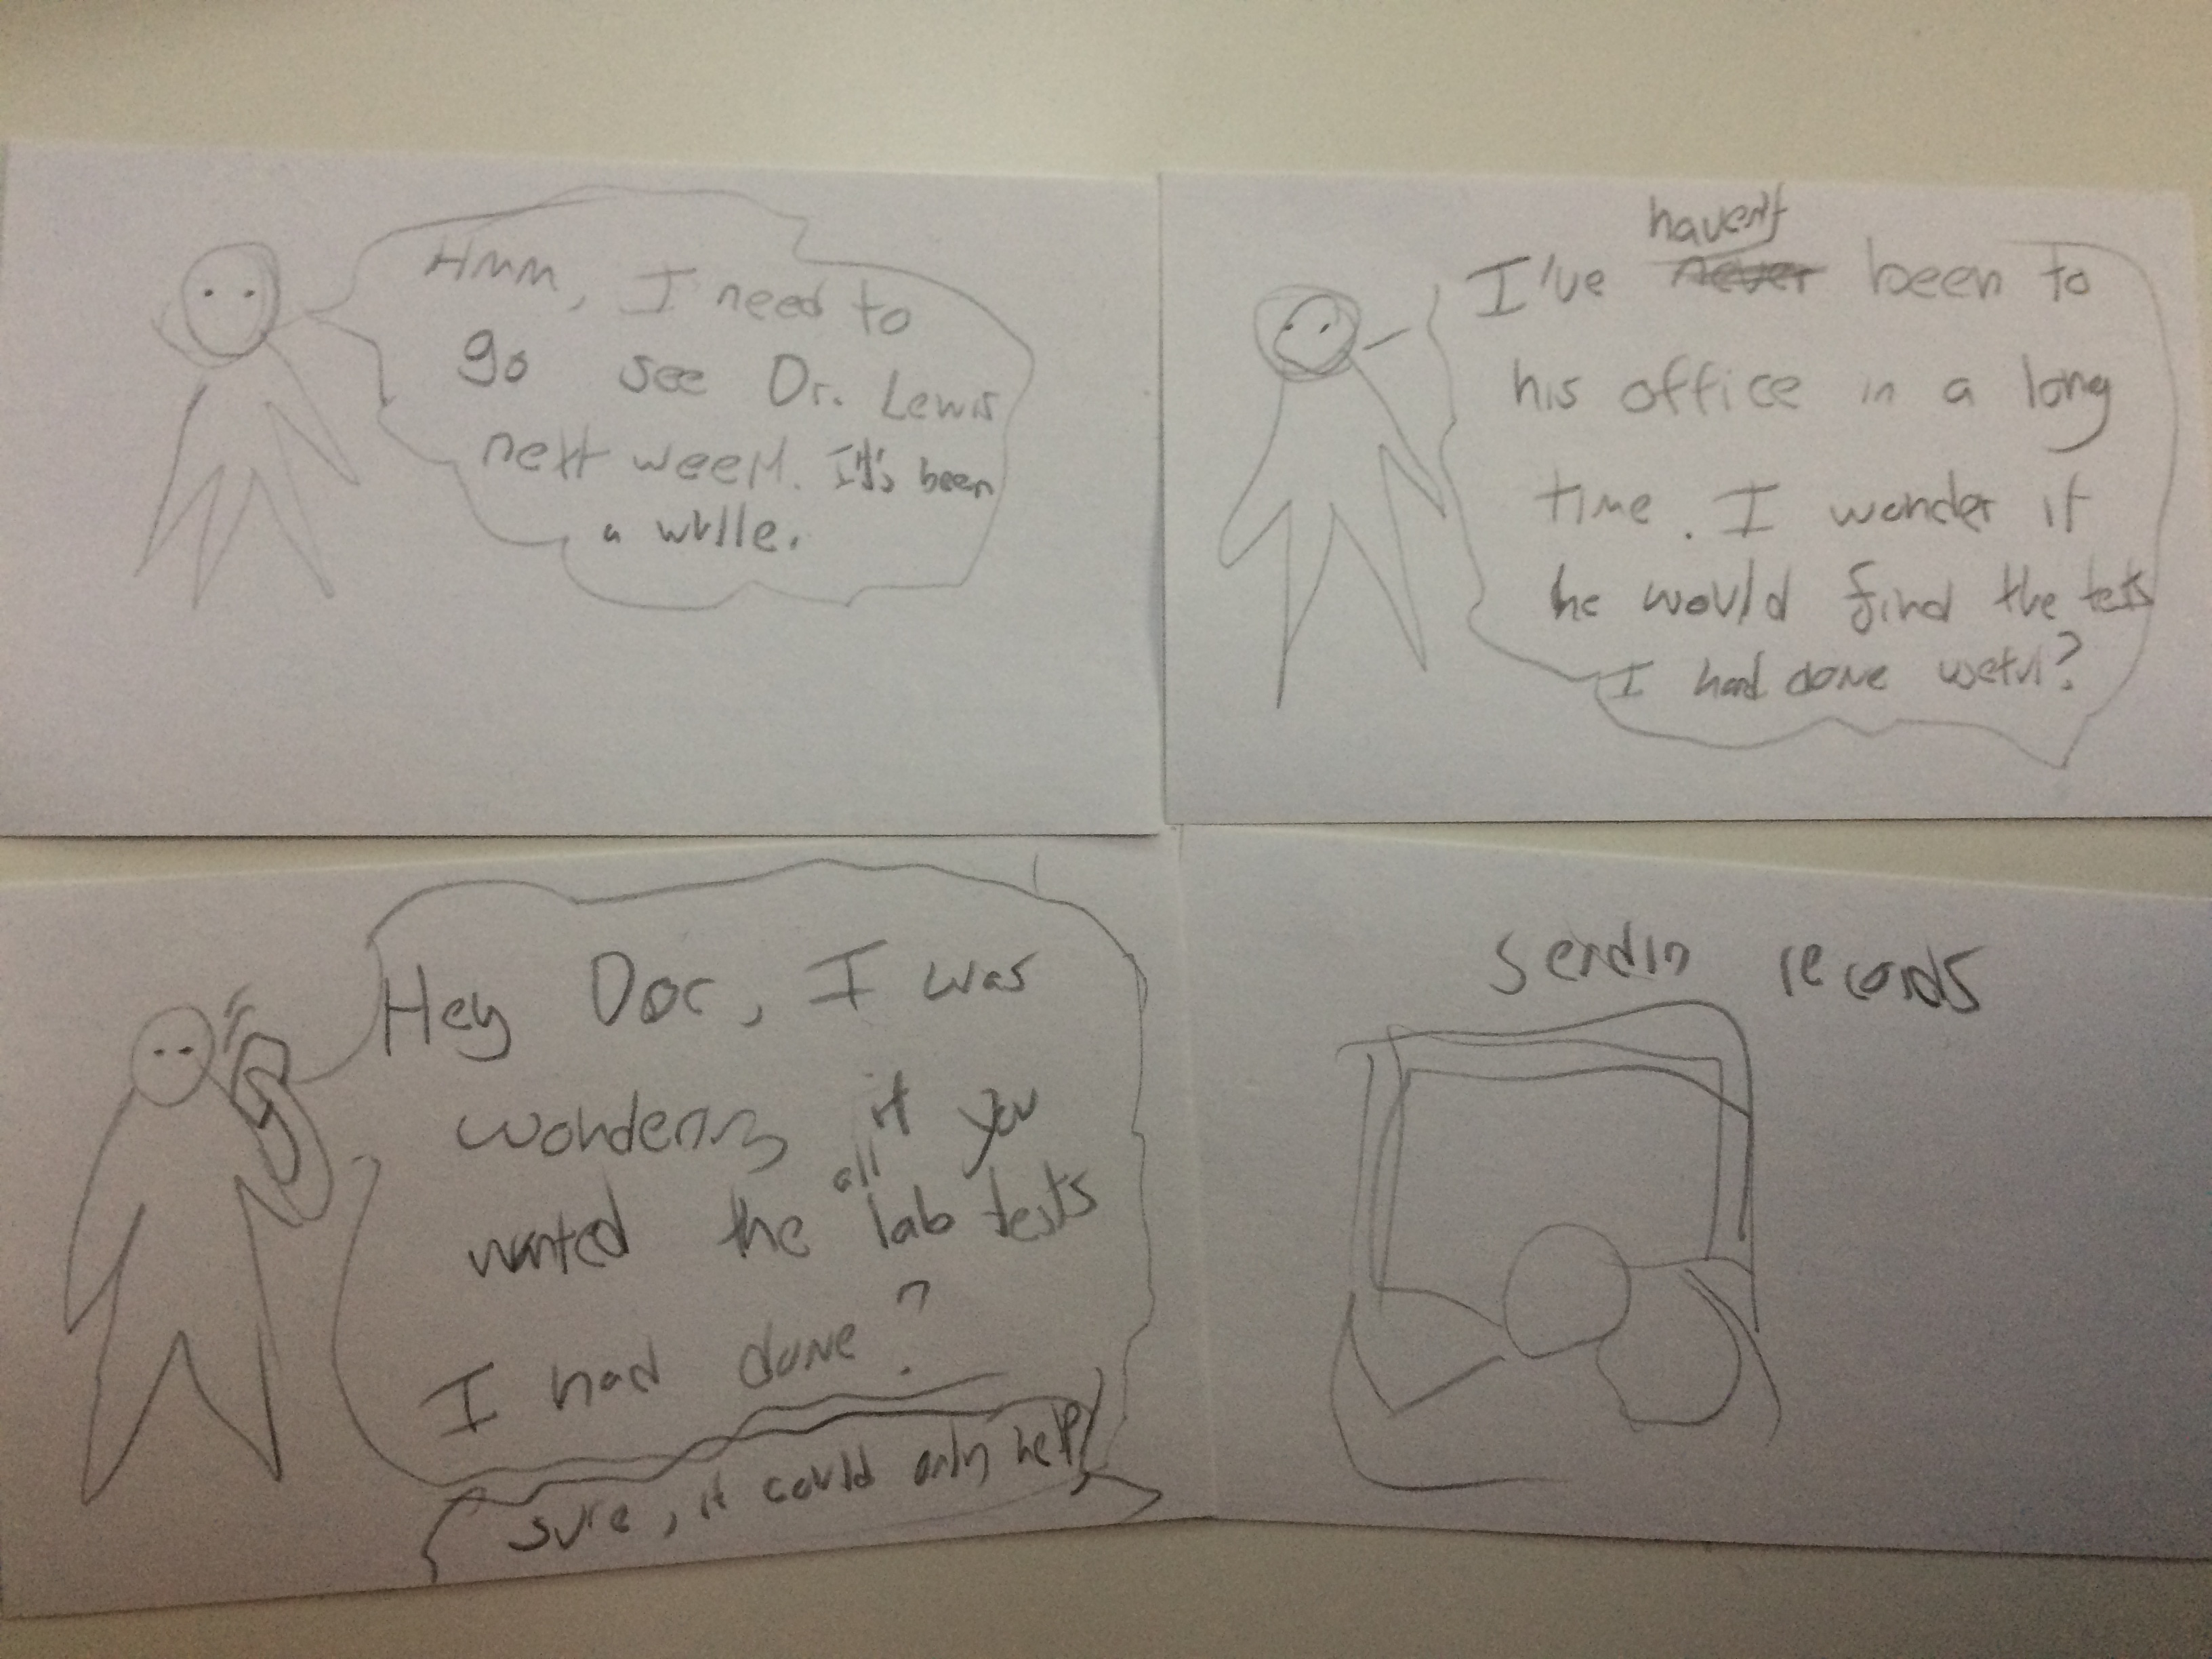 Hmm, I need to
go see Dr. Lewis
next week. It's been
a while.
haven't
I've never been to
his office in a long
time. I wonder if
he would find the tets
I had done useful?
Hey Doc, I was
wondering if you
all
wanted the lab tests
I had done?
sure, it could only help
sendin records